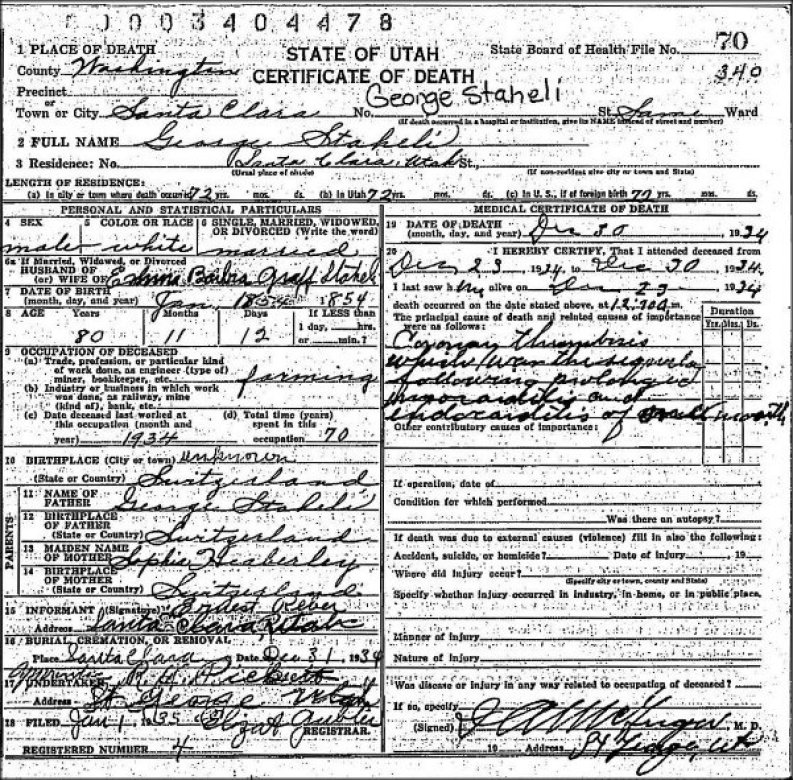 00003404478
1 PLACE OF DEATH
STATE OF UTAH
State Board of Health File No. 70
County Washington
CERTIFICATE OF DEATH
340
Precinct
George Staheli
or
Town or City Santa Clara No. St. Same Ward
(If death occurred in a hospital or institution, give its NAME instead of street and number)
2 FULL NAME George Staheli
3 Residence: No. Santa Clara, Utah St.,
(Usual place of abode) (If non-resident give city or town and State)
LENGTH OF RESIDENCE:
(a) In city or town where death occurred 72 yrs. mos. ds. (b) In Utah 72 yrs. mos. ds. (c) In U. S., if of foreign birth 70 yrs. mos. ds.
PERSONAL AND STATISTICAL PARTICULARS
4 SEX 5 COLOR OR RACE 6 SINGLE, MARRIED, WIDOWED, OR DIVORCED (Write the word)
male white married
6a If Married, Widowed, or Divorced
HUSBAND OF
(or) WIFE OF Barbra Graff Staheli
7 DATE OF BIRTH
(month, day, and year) Jan 1854 1854
8 AGE Years Months Days If LESS than
1 day, hrs.
80 11 12 or min.?
9 OCCUPATION OF DECEASED
(a) Trade, profession, or particular kind
of work done, as engineer (type of)
miner, bookkeeper, etc. farming
(b) Industry or business in which work
was done, as railway, mine
(kind of), bank, etc.
(c) Date deceased last worked at (d) Total time (years)
this occupation (month and spent in this
year) 1934 occupation 70
10 BIRTHPLACE (City or town) unknown
(State or Country) Switzerland
PARENTS
11 NAME OF
FATHER George Staheli
12 BIRTHPLACE
OF FATHER
(State or Country) Switzerland
13 MAIDEN NAME
OF MOTHER Sophie
14 BIRTHPLACE
OF MOTHER
(State or Country) Switzerland
15 INFORMANT (Signature) Ernest Reber
Address Santa Clara, Utah
16 BURIAL, CREMATION, OR REMOVAL
Place Santa Clara Date Dec 31, 1934
17 UNDERTAKER Pickett
Address St. George Utah
18 FILED Jan 1 1935 Eliza A.
REGISTRAR.
REGISTERED NUMBER 4
MEDICAL CERTIFICATE OF DEATH
19 DATE OF DEATH
(month, day, and year) Dec 30 1934
20 I HEREBY CERTIFY, That I attended deceased from
Dec 23, 1934, to Dec 30 1934.
I last saw him alive on Dec 29 1934
death occurred on the date stated above, at 12:30 a m.
The principal cause of death and related causes of importance
were as follows:
Duration
Yrs. Mos. Ds.
Coronary thrombosis
which was the sequela
following prolonged
myocarditis and
endocarditis of months
Other contributory causes of importance:
If operation, date of
Condition for which performed
Was there an autopsy?
If death was due to external causes (violence) fill in also the following:
Accident, suicide, or homicide? Date of injury , 19
Where did injury occur?
(Specify city or town, county and State)
Specify whether injury occurred in industry, in home, or in public place.
Manner of injury
Nature of injury
Was disease or injury in any way related to occupation of deceased?
If so, specify
(Signed) McGregor M. D.
19 Address St George, Ut